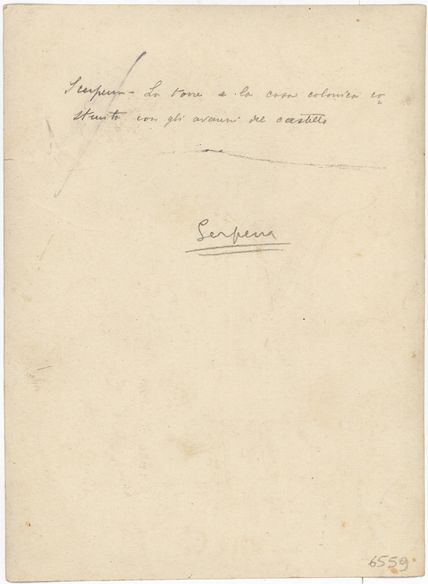 Scerpena - La torre e la casa colonica co
struita con gli avanzi del castello
Serpena
6559